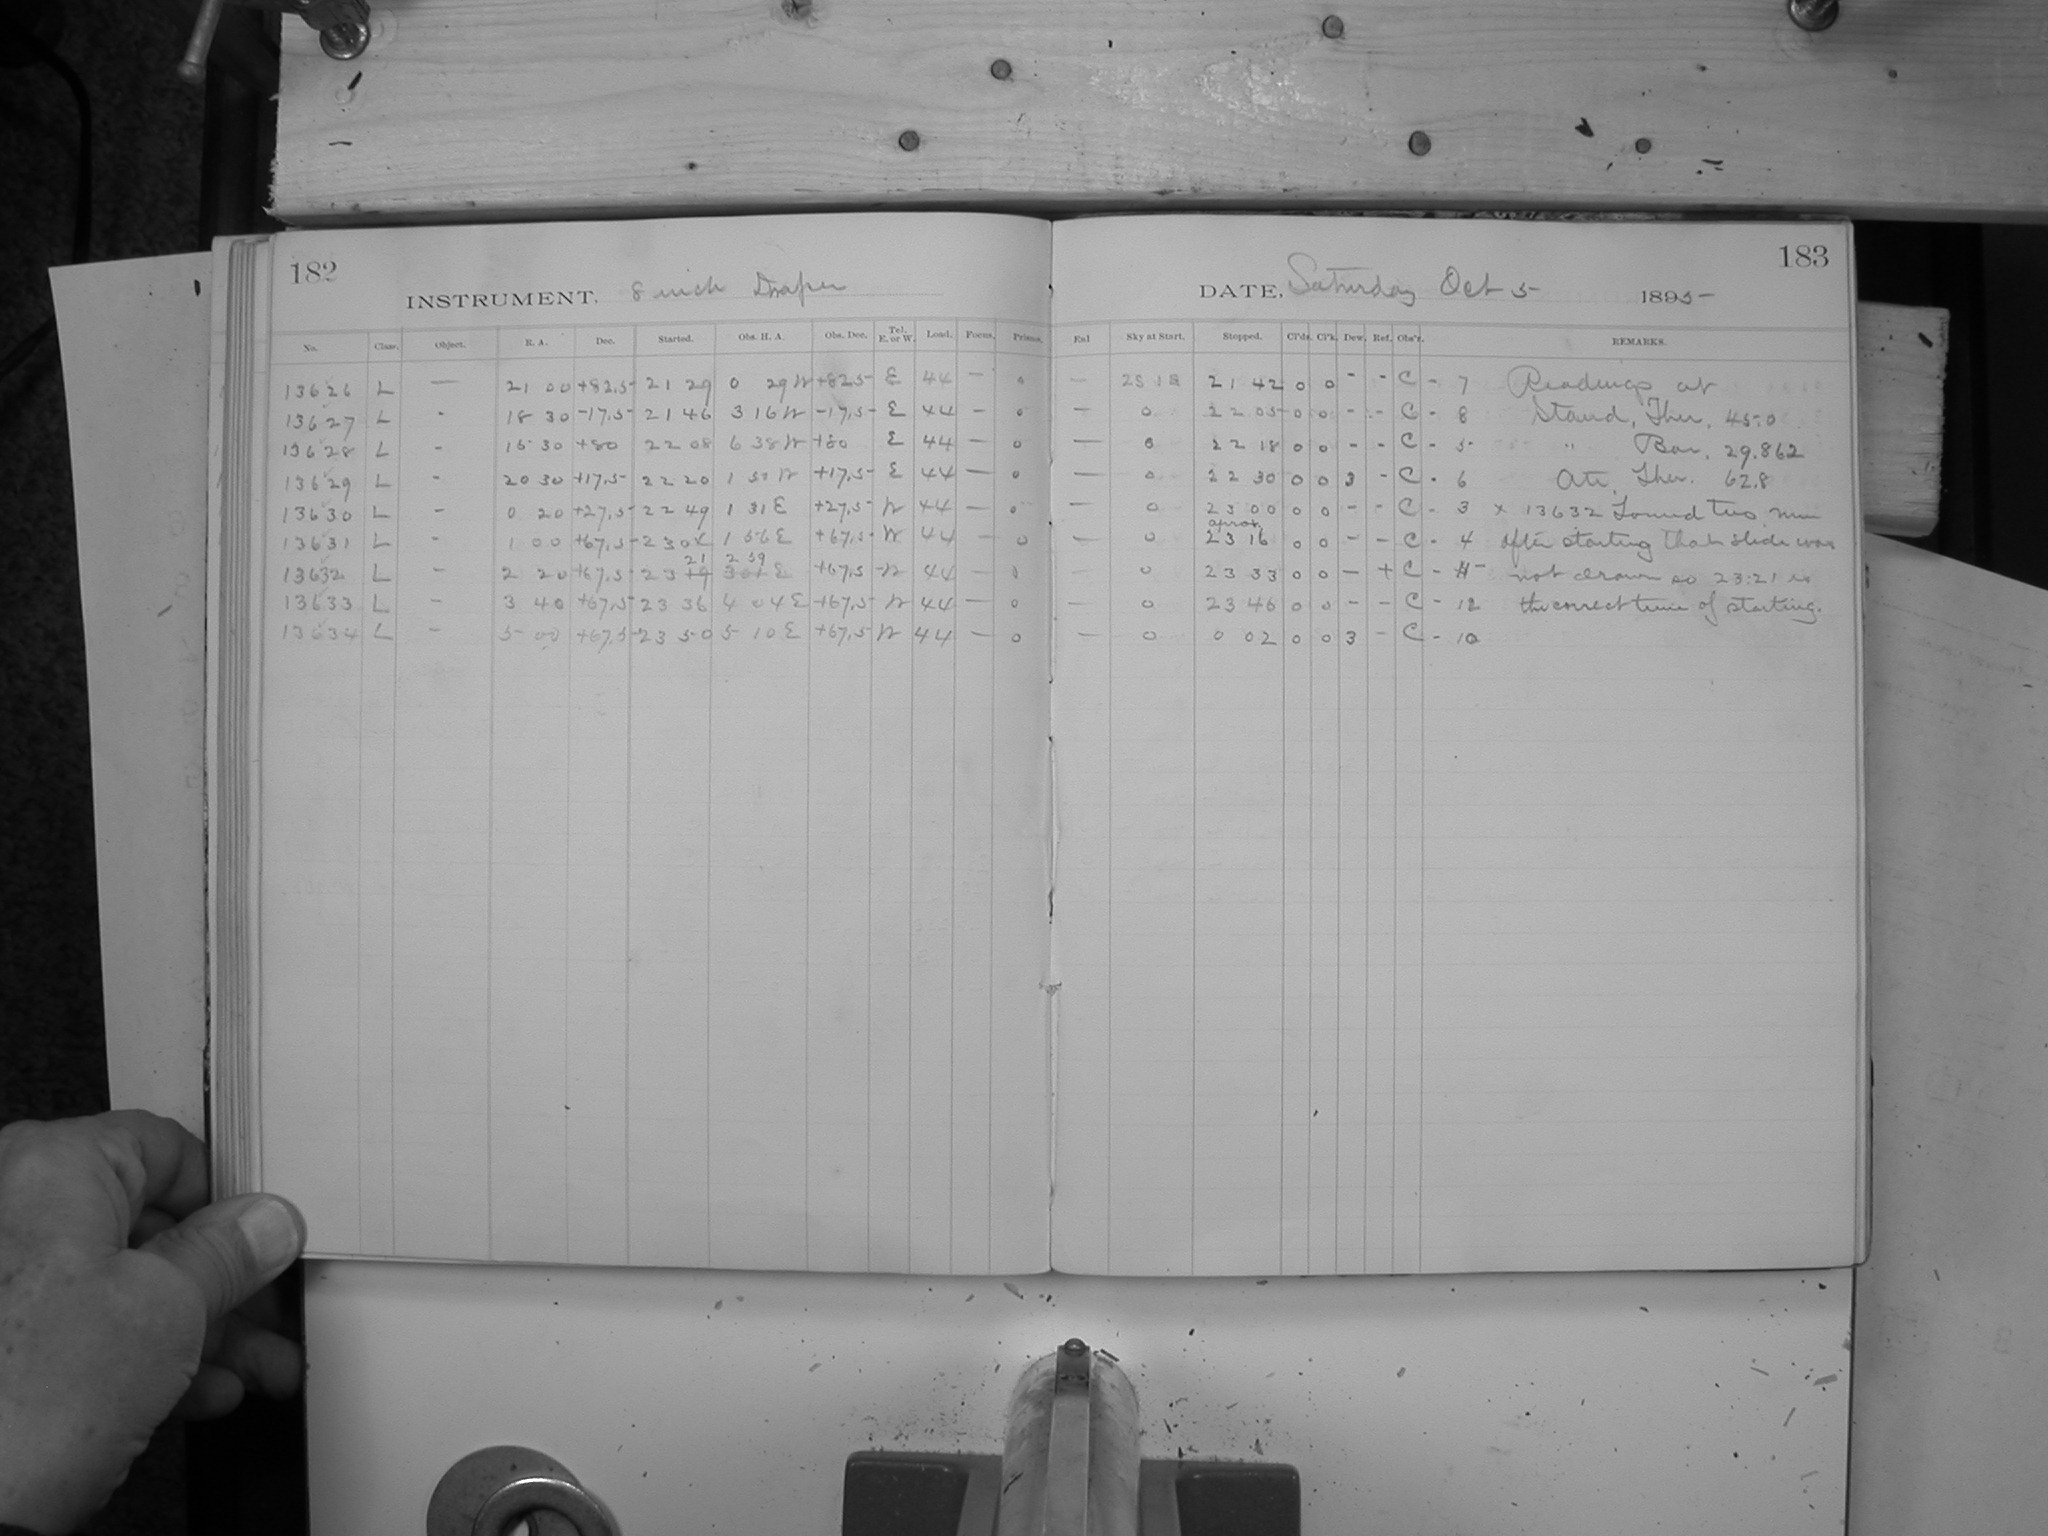 182
INSTRUMENT, 8 inch Draper
No. Class. Object. R. A. Dec. Started. Obs. H. A. Obs. Dec. Tel. E. or W. Load. Focus. Prisms.
13626 L — 21 00 +82.5 21 29 0 29 W +82.5 E 44 — 0
13627 L - 18 30 -17.5 21 46 3 16 W -17.5 E 44 — 0
13628 L - 15 30 +80 22 08 6 38 W +80 E 44 — 0
13629 L - 20 30 +17.5 22 20 1 50 W +17.5 E 44 — 0
13630 L - 0 20 +27.5 22 49 1 31 E +27.5 W 44 — 0
13631 L - 1 00 +67.5 23 04 1 56 E +67.5 W 44 — 0
21 2 59
13632 L - 2 20 +67.5 23 19 3 01 E +67.5 W 44 — 0
13633 L - 3 40 +67.5 23 36 4 04 E +67.5 W 44 — 0
13634 L - 5 00 +67.5 23 50 5 10 E +67.5 W 44 — 0
183
DATE, Saturday Oct 5 1895
Exl Sky at Start. Stopped. Cl'ds. Cl'k. Dew. Ref. Obs'r. REMARKS.
— 21 42 0 0 - - C - 7 Readings at
— 0 22 05 0 0 - - C - 8 Stand, Ther. 45.0
— 0 22 18 0 0 - - C - 5 " Bar. 29.862
— 0 22 30 0 0 3 - C - 6 Att. Ther. 62.8
— 0 23 00 0 0 - - C - 3 x 13632 Found two min
aprox
— 0 23 16 0 0 - - C - 4 after starting that slide was
— 0 23 33 0 0 - + C - not drawn so 23:21 is
— 0 23 46 0 0 - - C - 12 the correct time of starting.
— 0 0 02 0 0 3 - C - 10